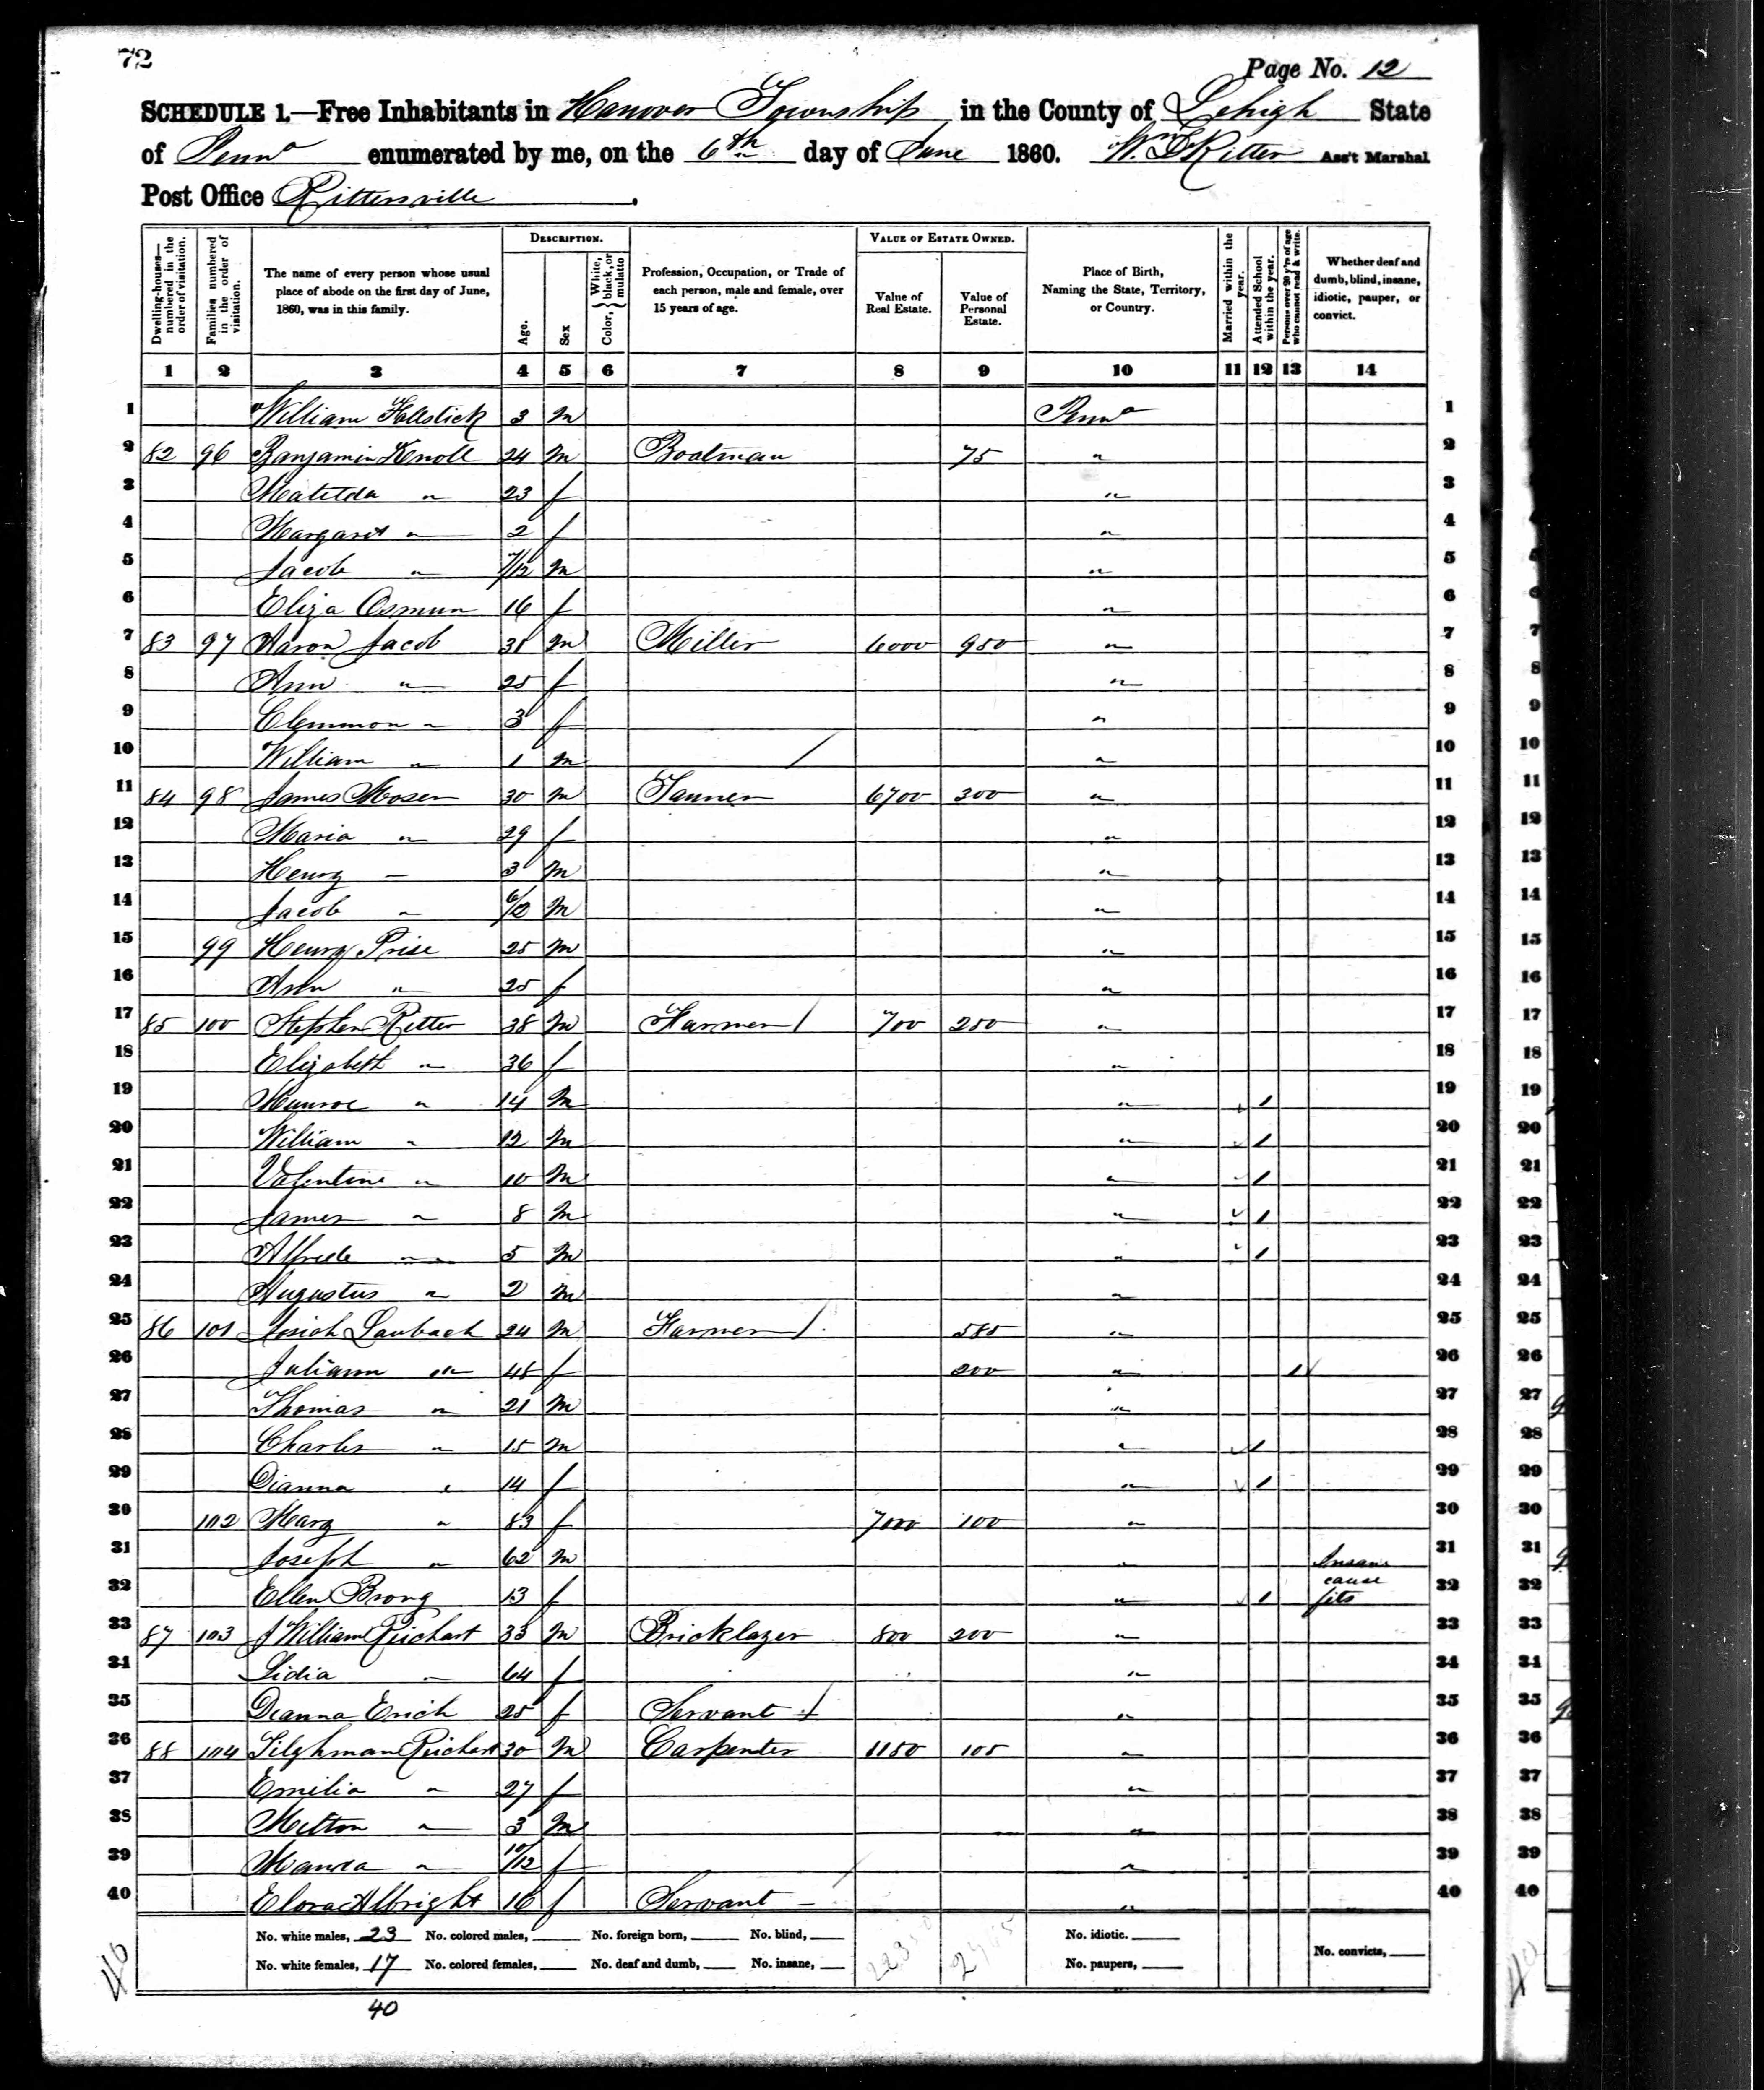 72
Page No. 12
SCHEDULE 1.—Free Inhabitants in Hanover Township in the County of Lehigh State
of Penna enumerated by me, on the 6th day of June 1860. Ass't Marshal
Post Office Rittersville.
Dwelling-houses—numbered in the order of visitation. Families numbered in the order of visitation. The name of every person whose usual place of abode on the first day of June, 1860, was in this family. DESCRIPTION. Age. Sex Color, White, black, or mulatto Profession, Occupation, or Trade of each person, male and female, over 15 years of age. VALUE OF ESTATE OWNED. Value of Real Estate. Value of Personal Estate. Place of Birth, Naming the State, Territory, or Country. Married within the year. Attended School within the year. Persons over 20 y'rs of age who cannot read & write. Whether deaf and dumb, blind, insane, idiotic, pauper, or convict.
1 2 3 4 5 6 7 8 9 10 11 12 13 14
1 William 3 m Penna 1
2 82 96 Banjamin Knoll 24 m Boatman 75 " 2
3 Matilda " 23 f " 3
4 Margaret " 2 f " 4
5 Jacob " 7/12 m " 5
6 Eliza Osmun 16 f " 6
7 83 97 Aaron Jacob 31 m Miller 6000 950 " 7
8 Ann " 25 f " 8
9 Clemmon " 3 f " 9
10 William " 1 m / " 10
11 84 98 James Moser 30 m Tanner 6700 300 " 11
12 Maria " 29 f " 12
13 Henry " 3 m " 13
14 Jacob " 6/12 m " 14
15 99 Henry Prise 25 m " 15
16 Ann " 25 f " 16
17 85 100 Stephen Ritter 38 m Farmer / 700 250 " 17
18 Elizabeth " 36 f " 18
19 Munroe " 14 m " 1 19
20 William " 12 m " 1 20
21 Valentine " 10 m " 1 21
22 James " 8 m " 1 22
23 Alfrede " 5 m " 1 23
24 Augustus " 2 m " 24
25 86 101 Josiah Laubach 24 m Farmer / 585 " 25
26 Juliann " 48 f 200 " 1 26
27 Thomas " 21 m " 27
28 Charles " 15 m " 1 28
29 Dianna " 14 f " 1 29
30 102 Mary " 83 f 7000 100 " 30
31 Joseph " 62 m " Insane 31
32 Ellen Brong 13 f " 1 cause fits 32
33 87 103 J William Reichart 33 m Bricklazer 800 200 " 33
34 Lidia " 64 f " 34
35 Dianna Erich 25 f Servant " 35
36 88 104 Tilghman Reichart 30 m Carpenter 1150 105 " 36
37 Emilia " 27 f " 37
38 Milton " 3 m " 38
39 " 10/12 f " 39
40 Elora Albright 16 f Servant " 40
No. white males, 23 No. colored males, No. foreign born, No. blind, No. idiotic.
No. white females, 17 No. colored females, No. deaf and dumb, No. insane, No. paupers, No. convicts,
40
40